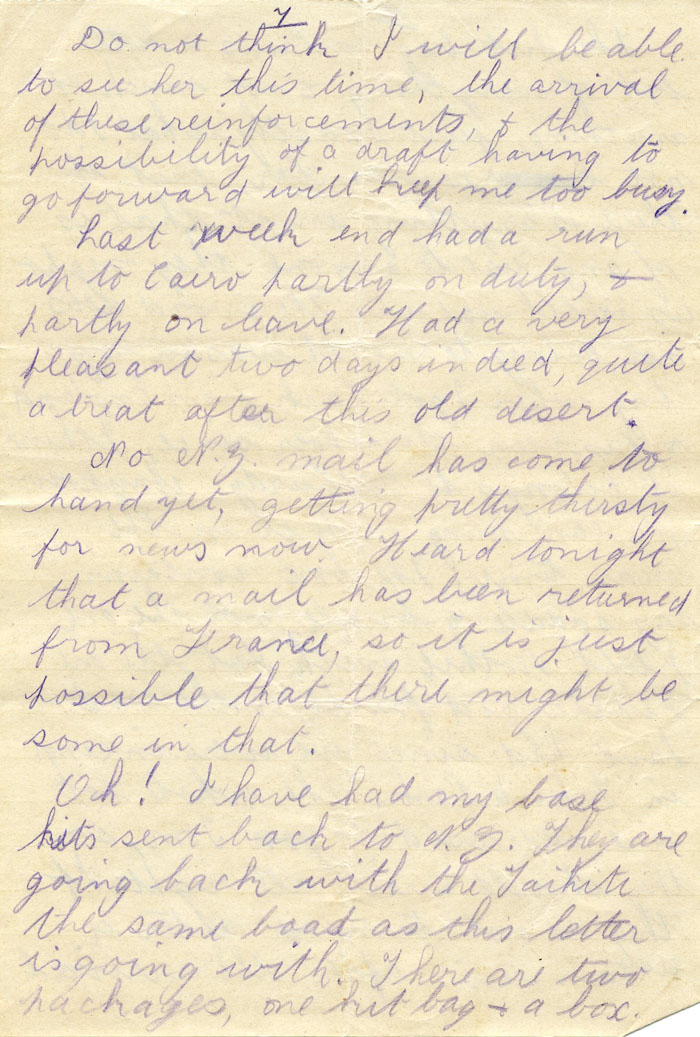 7
Do not think I will be able
to see her this time, the arrival
of these reinforcements, & the
possibility of a draft having to
go forward will keep me too busy.
Last week end had a run
up to Cairo partly on duty, &
partly on leave. Had a very
pleasant two days indeed, quite
a treat after this old desert.
No N.Z. mail has come to
hand yet, getting pretty thirsty
for news now. Heard tonight
that a mail has been returned
from France, so it is just
possible that there might be
some in that.
Oh! I have had my base
kits sent back to N.Z. They are
going back with the Taihiti
the same boat as this letter
is going with. There are two
packages, one kit bag & a box.